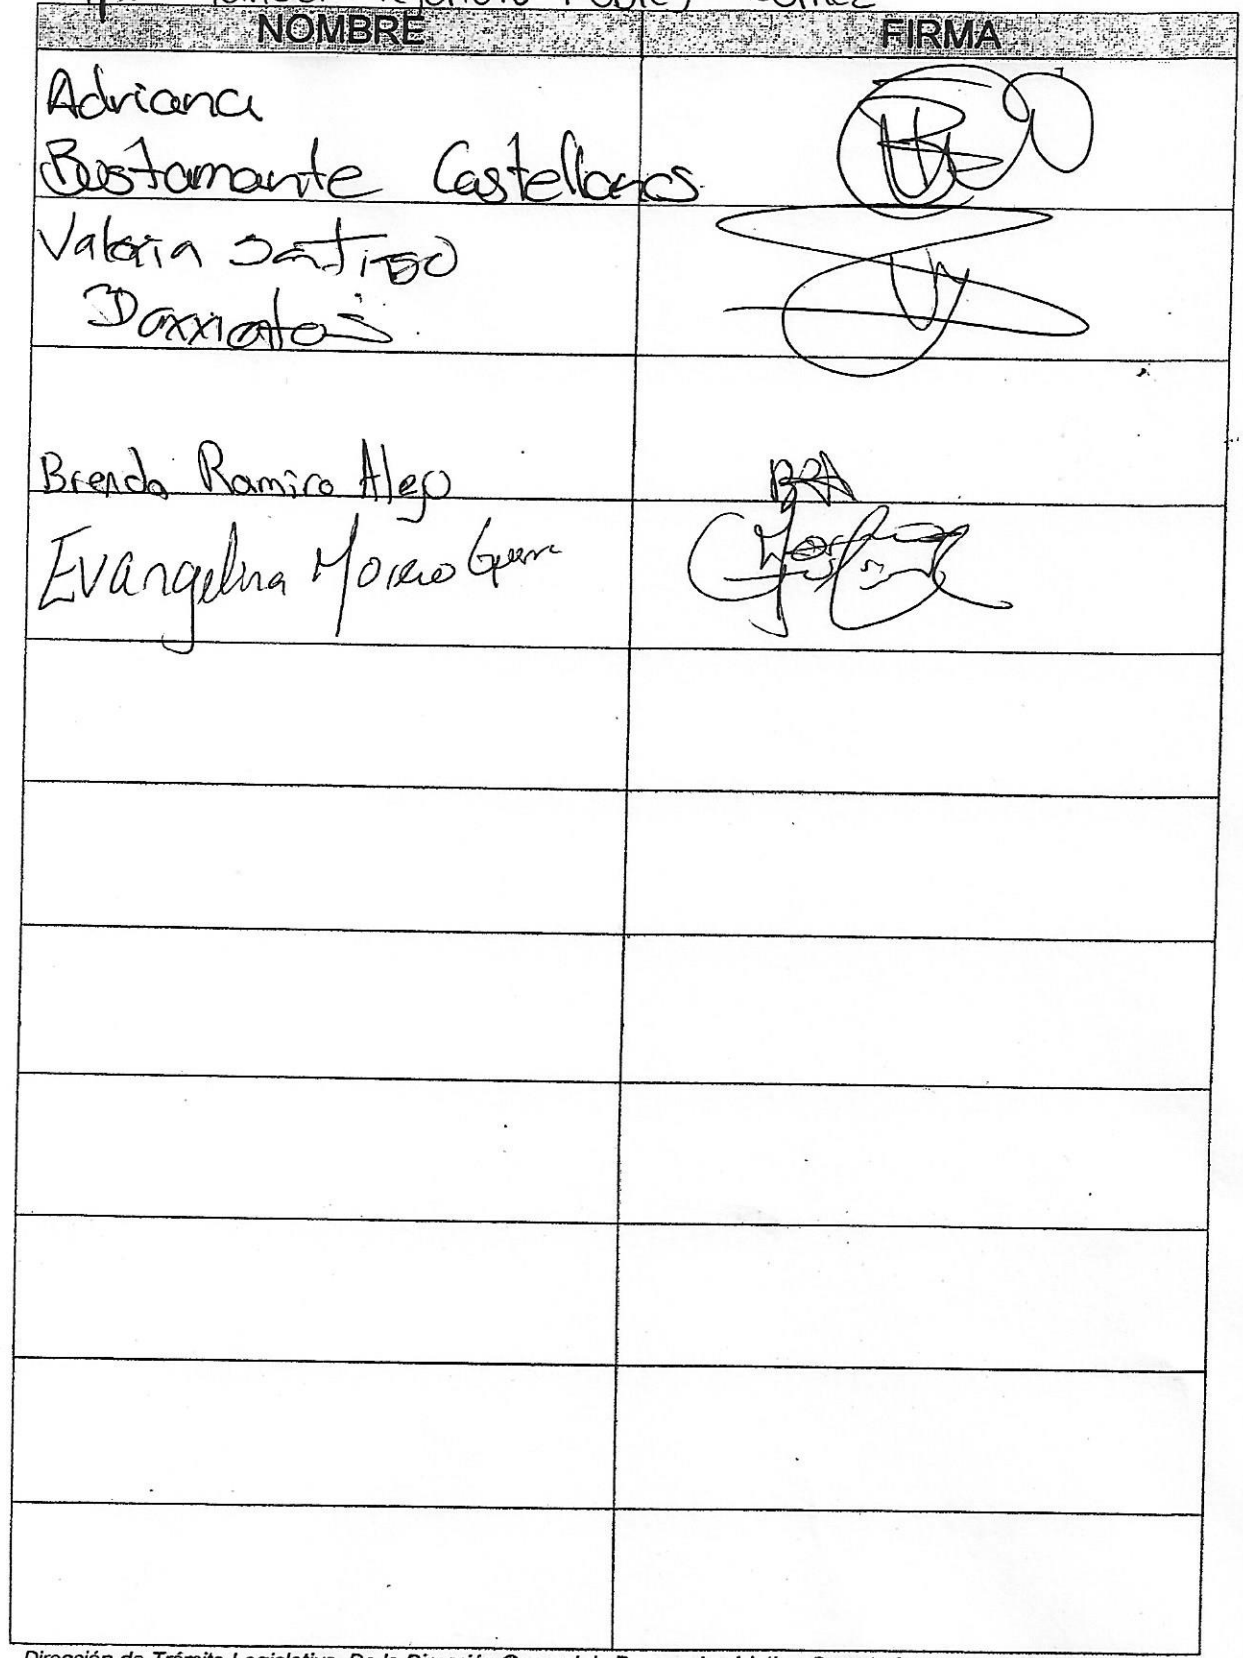 Manuel Alejandro Robles Gómez
NOMBRE FIRMA
Adriana
Bustamante Castellanos
Valeria Santiago
Barrientos
Brenda Ramiro Alejo BRA
Evangelina Moreno Guerra
Dirección de Trámite Legislativo. De la Dirección General de